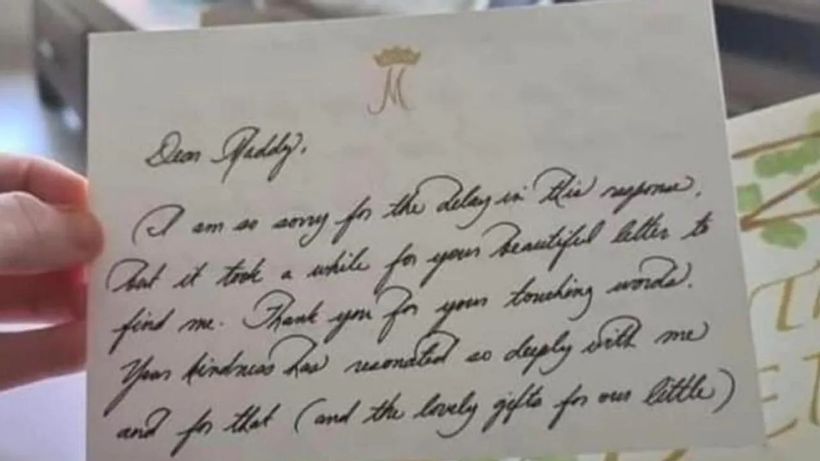 M
Dear Maddy,
I am so sorry for the delay in this response,
but it took a while for your beautiful letter to
find me. Thank you for your touching words.
Your kindness has resonated so deeply with me
and for that (and the lovely gifts for our little)